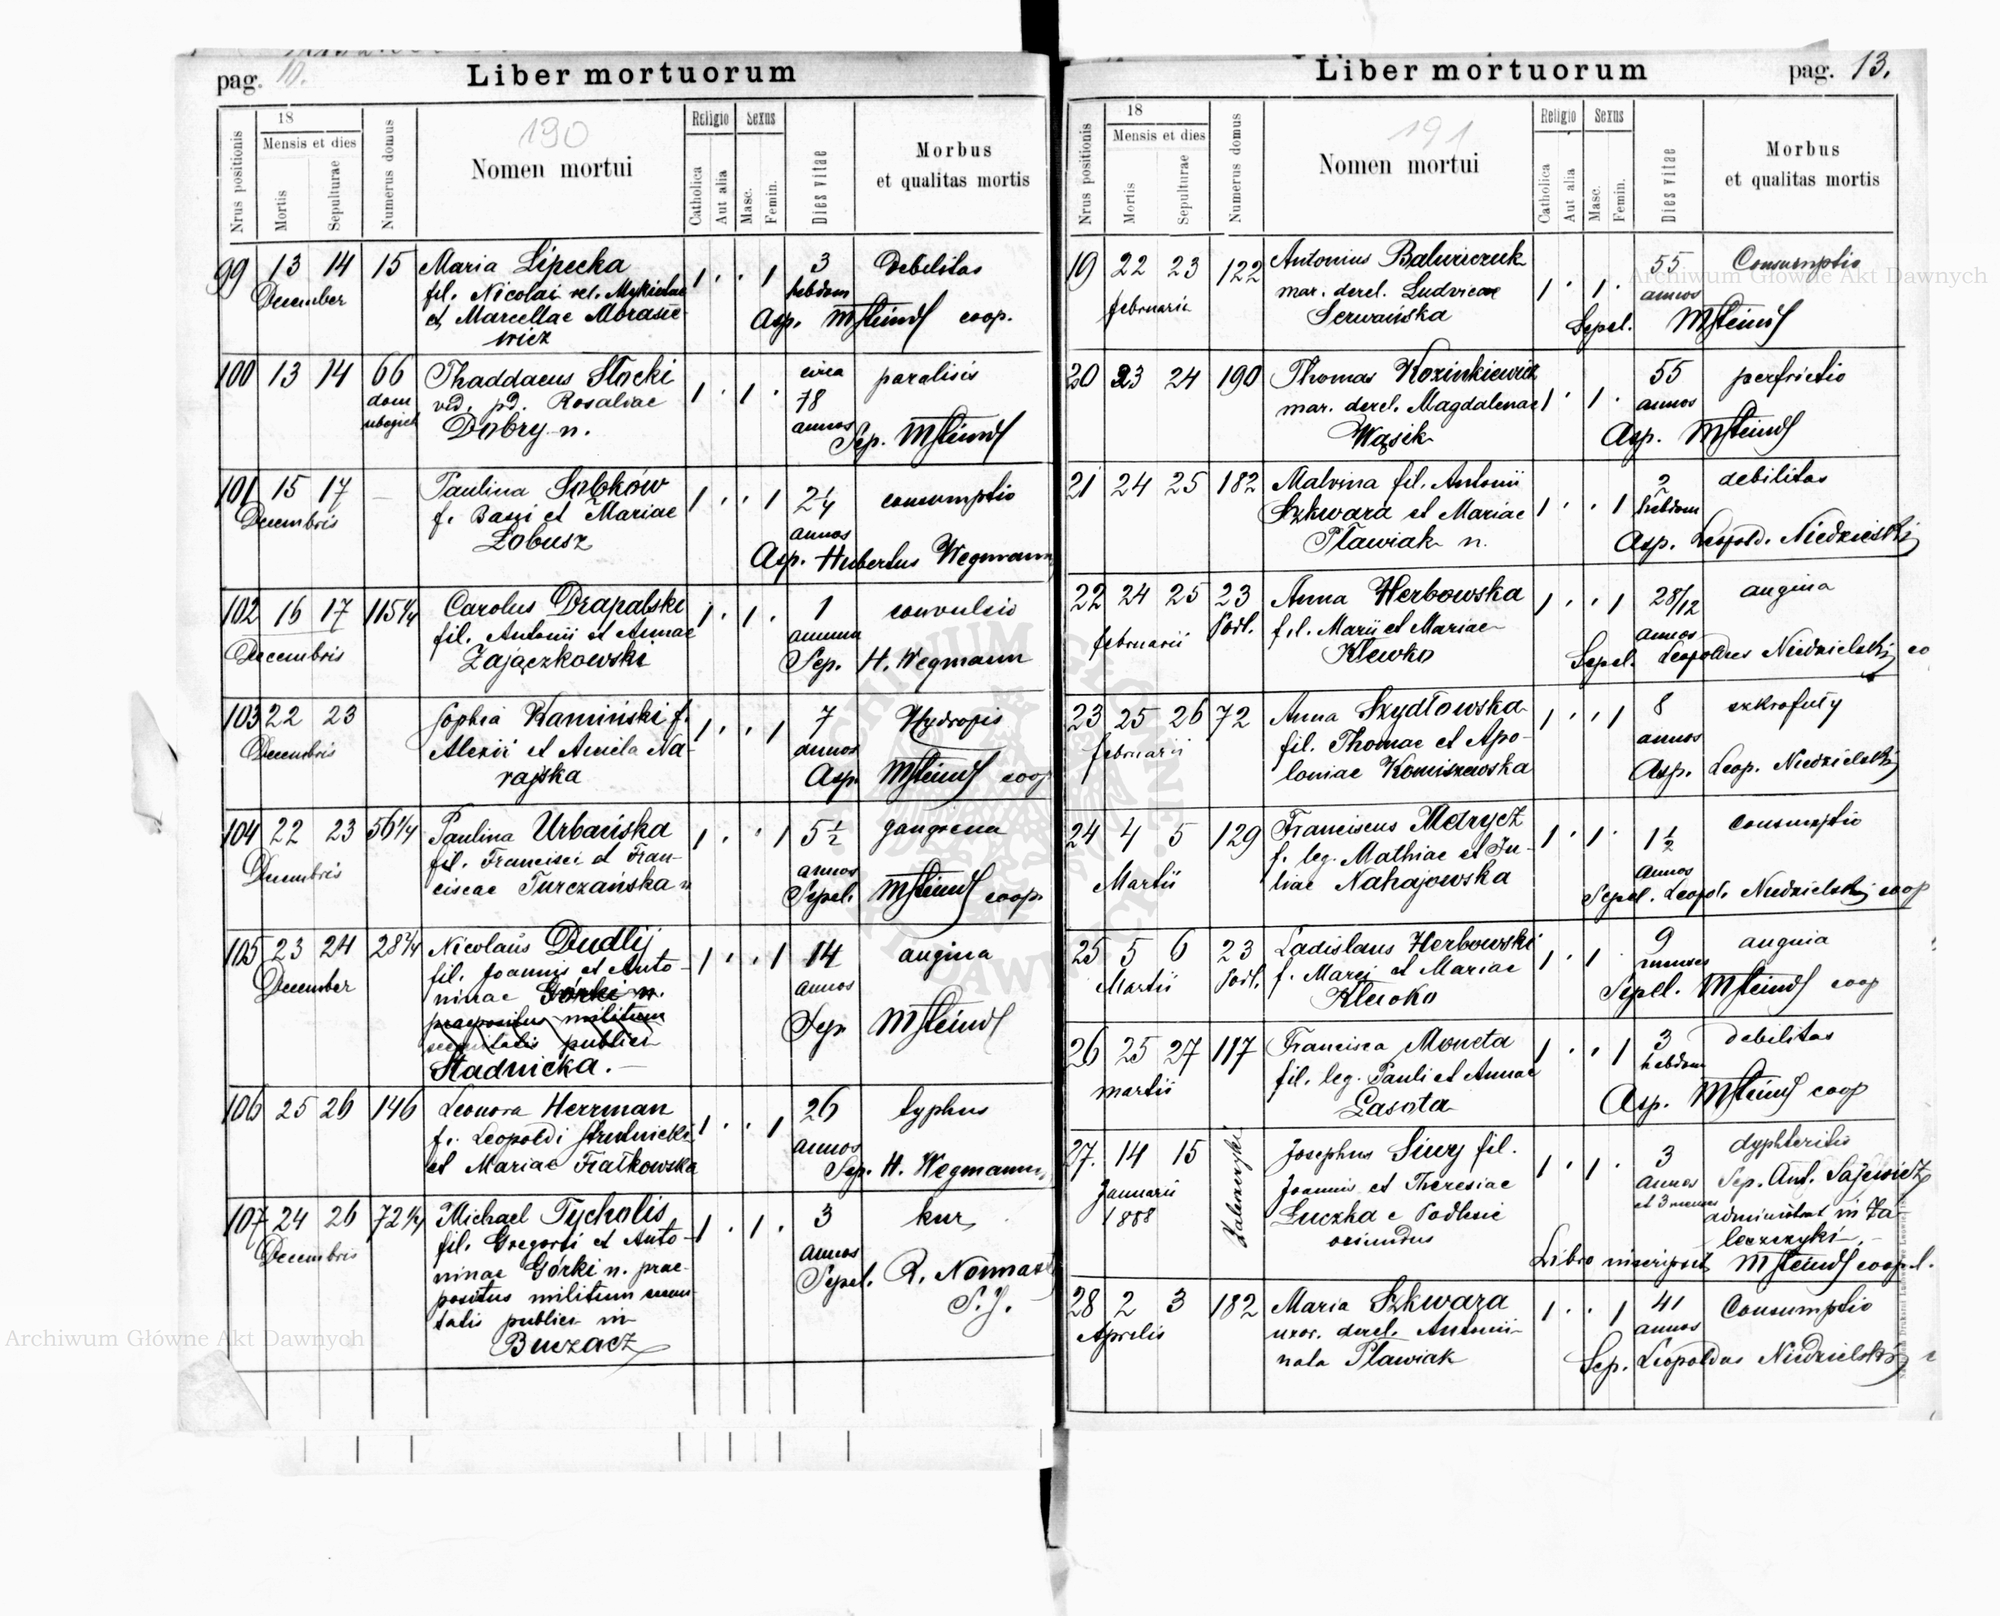 pag. 10.
Liber mortuorum
190
Nrus positionis
18
Mensis et dies
Mortis
Sepulturae
Numerus domus
Nomen mortui
Religio
Catholica
Aut alia
Sexus
Masc.
Femin.
Dies vitae
Morbus
et qualitas mortis
99 13 14 15 Maria Lipecka 1 . . 1 3 Debilitas
December fil. Nicolai hebdom
et Marcellae Abrasie-
wicz Asp. MSteindl coop.
100 13 14 66 Thaddaeus Słocki 1 . 1 . circa paralisis
dom vid. pd. Rosaliae 78
Dobry n. annos Sep. MSteindl
101 15 17 — Paulina Sobków 1 . . 1 2 1/4 consumptio
Decembris f. Basi et Mariae annos
Łobusz Asp. Hubertus Wegmann
102 16 17 115 1/4 Carolus Drapalski 1 . 1 . 1 convulsio
Decembris fil. Antonii et Annae annum
Zajączkowski Sep. H. Wegmann
103 22 23 Sophia Kamiński f. 1 . . 1 7 Hydropis
Decembris Alexii et Aniela Na- annos
rajska Asp. MSteindl coop
104 22 23 56 1/4 Paulina Urbańska 1 . . 1 5 1/2 gangrena
Decembris fil. Francisci et Fran- annos
ciscae Turczańska n Sepel. MSteindl coop.
105 23 24 28 2/4 Nicolaus Dudlij 1 . . 1 14 angina
December fil. Joannis et Anto- annos
ninae Górki n.
praepositus militum
securitatis publici Sep MSteindl
Stadnicka. —
106 25 26 146 Leonora Herrman 1 . . 1 26 typhus
f. Leopoldi Strutnicki annos
et Mariae Fiałkowska Sep. H. Wegmann
107 24 26 72 1/4 Michael Tycholis 1 . 1 . 3 kur
Decembris fil. Gregorii et Anto- annos
ninae Górki n. prae- Sepel.
positus militum secu- S. J.
ritatis publici in
Buczacz
Liber mortuorum
pag. 13.
191
Nrus positionis
18
Mensis et dies
Mortis
Sepulturae
Numerus domus
Nomen mortui
Religio
Catholica
Aut alia
Sexus
Masc.
Femin.
Dies vitae
Morbus
et qualitas mortis
19 22 23 122 Antonius Balwiczuk 1 . 1 . 55 Consumptio
februarii mar. derel. Ludvicae annos
Serwańska Sepel. MSteindl
20 23 24 190 Thomas Kozinkiewicz 55 perfrictio
mar. derel. Magdalenae 1 . 1 . annos
Wąsik Asp. MSteindl
21 24 25 182 Malvina fil. Antonii 2 debilitas
Szkwara et Mariae 1 . . 1 hebdom
Pławiak n. Asp. Leopold. Niedzielski
22 24 25 23 Anna Herbowska 1 . . 1 28/12 angina
februarii Podl. fil. Marii et Mariae annos
Klewko Sepel. Leopoldus Niedzielski co
23 25 26 72 Anna Szydłowska 1 . . 1 8 szkrofuły
februarii fil. Thomae et Apo- annos
loniae Komiszewska Asp. Leop. Niedzielski
24 4 5 129 Franciscus Mdrycz 1 . 1 . 1 1/2 consumptio
Martii f. leg. Mathiae et Ju- annos
liae Nahajowska Sepel. Leopol. Niedzielski coop
25 5 6 23 Ladislaus Herbowski 1 . 1 . 9 angina
Martii Podl. f. Marci et Mariae menses
Klewko Sepel. MSteindl coop
26 25 27 117 Francisca Moneta 1 . . 1 3 debilitas
martii fil. leg. Pauli et Annae hebdom
Lasota Asp. MSteindl coop
27. 14 15 Josephus Siwy fil. 1 . 1 . 3 dyphteritis
Januarii Joannis et Theresiae annos Sep. Ant. Sajewicz
1888 Łuczka e Podlesie et 3 menses administrat in Za-
oriundus leszczyki. —
Libro inscripsit MSteindl coop.
28 2 3 182 Maria Szkwara 1 . . 1 41 Consumptio
Aprilis uxor. derel. Antonii annos
nata Pławiak Sep. Leopoldus Niedzielski
Archiwum Główne Akt Dawnych
Archiwum Główne Akt Dawnych
ARCHIWUM GŁÓWNE AKT DAWNYCH